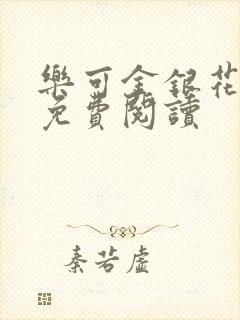 樂可金銀花
免費閱讀
秦若虛